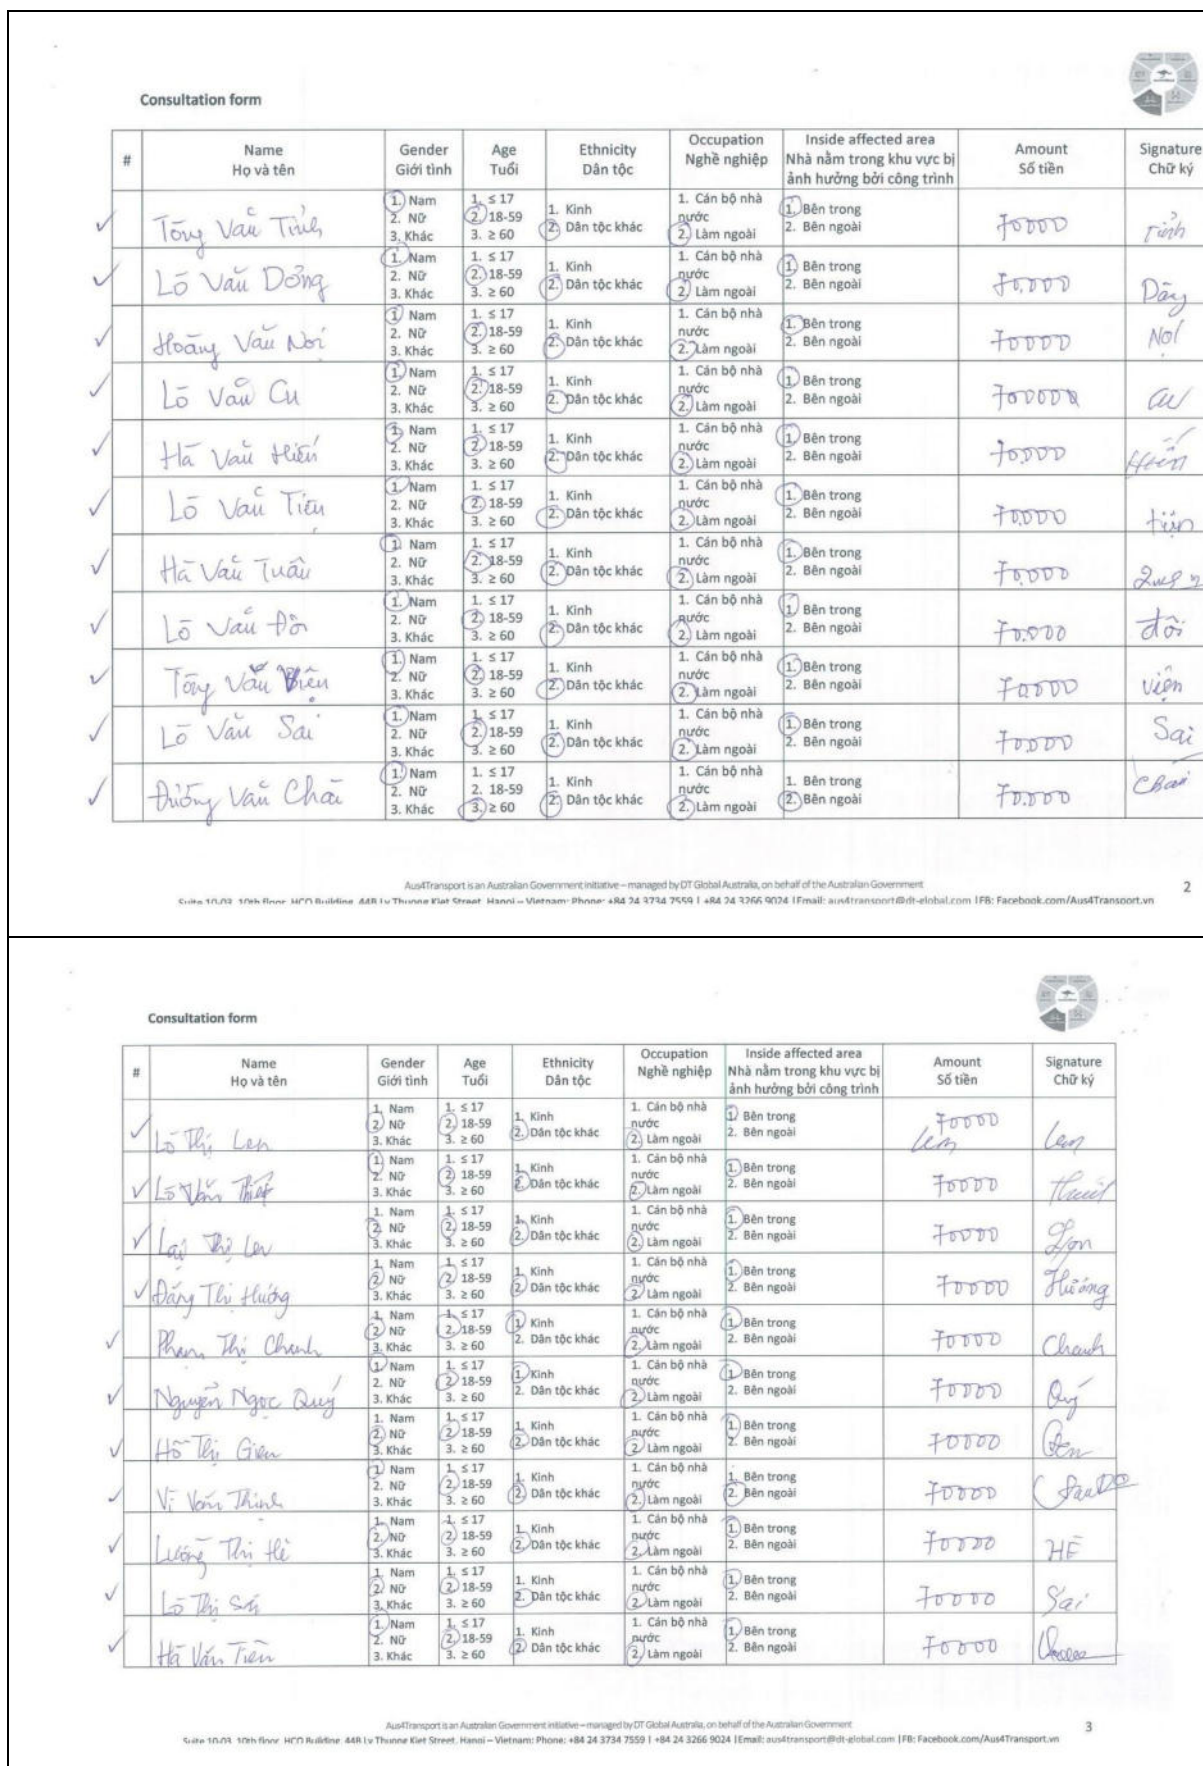 Consultation form
# Name Gender Age Ethnicity Occupation Inside affected area Amount Signature
Họ và tên Giới tính Tuổi Dân tộc Nghề nghiệp Nhà nằm trong khu vực bị ảnh hưởng bởi công trình Số tiền Chữ ký
✓ Tòng Văn Tỉnh 1. Nam 2. Nữ 3. Khác 1. ≤ 17 2. 18-59 3. ≥ 60 1. Kinh 2. Dân tộc khác 1. Cán bộ nhà nước 2. Làm ngoài 1. Bên trong 2. Bên ngoài 70000 Tỉnh
✓ Lò Văn 1. Nam 2. Nữ 3. Khác 1. ≤ 17 2. 18-59 3. ≥ 60 1. Kinh 2. Dân tộc khác 1. Cán bộ nhà nước 2. Làm ngoài 1. Bên trong 2. Bên ngoài 70,000
✓ Hoàng Văn Nơi 1. Nam 2. Nữ 3. Khác 1. ≤ 17 2. 18-59 3. ≥ 60 1. Kinh 2. Dân tộc khác 1. Cán bộ nhà nước 2. Làm ngoài 1. Bên trong 2. Bên ngoài 70000
✓ Lò Văn Cu 1. Nam 2. Nữ 3. Khác 1. ≤ 17 2. 18-59 3. ≥ 60 1. Kinh 2. Dân tộc khác 1. Cán bộ nhà nước 2. Làm ngoài 1. Bên trong 2. Bên ngoài cu
✓ Hà Văn Hiến 1. Nam 2. Nữ 3. Khác 1. ≤ 17 2. 18-59 3. ≥ 60 1. Kinh 2. Dân tộc khác 1. Cán bộ nhà nước 2. Làm ngoài 1. Bên trong 2. Bên ngoài 70,000 Hiến
✓ Lò Văn Tiện 1. Nam 2. Nữ 3. Khác 1. ≤ 17 2. 18-59 3. ≥ 60 1. Kinh 2. Dân tộc khác 1. Cán bộ nhà nước 2. Làm ngoài 1. Bên trong 2. Bên ngoài 70,000 tiện
✓ Hà Văn Tuân 1. Nam 2. Nữ 3. Khác 1. ≤ 17 2. 18-59 3. ≥ 60 1. Kinh 2. Dân tộc khác 1. Cán bộ nhà nước 2. Làm ngoài 1. Bên trong 2. Bên ngoài 70,000
✓ Lò Văn Đôi 1. Nam 2. Nữ 3. Khác 1. ≤ 17 2. 18-59 3. ≥ 60 1. Kinh 2. Dân tộc khác 1. Cán bộ nhà nước 2. Làm ngoài 1. Bên trong 2. Bên ngoài 70.000 đôi
✓ Tòng Văn Viện 1. Nam 2. Nữ 3. Khác 1. ≤ 17 2. 18-59 3. ≥ 60 1. Kinh 2. Dân tộc khác 1. Cán bộ nhà nước 2. Làm ngoài 1. Bên trong 2. Bên ngoài 70,000 viện
✓ Lò Văn Sai 1. Nam 2. Nữ 3. Khác 1. ≤ 17 2. 18-59 3. ≥ 60 1. Kinh 2. Dân tộc khác 1. Cán bộ nhà nước 2. Làm ngoài 1. Bên trong 2. Bên ngoài 70,000 Sai
✓ Văn Chai 1. Nam 2. Nữ 3. Khác 1. ≤ 17 2. 18-59 3. ≥ 60 1. Kinh 2. Dân tộc khác 1. Cán bộ nhà nước 2. Làm ngoài 1. Bên trong 2. Bên ngoài 70.000 Chai
Aus4Transport is an Australian Government initiative – managed by DT Global Australia, on behalf of the Australian Government 2
Suite 10-03, 10th floor, HCO Building, 44B Ly Thuong Kiet Street, Hanoi – Vietnam: Phone: +84 24 3734 7559 | +84 24 3266 9024 |Email: aus4transport@dt-global.com |FB: Facebook.com/Aus4Transport.vn
Consultation form
# Name Gender Age Ethnicity Occupation Inside affected area Amount Signature
Họ và tên Giới tính Tuổi Dân tộc Nghề nghiệp Nhà nằm trong khu vực bị ảnh hưởng bởi công trình Số tiền Chữ ký
✓ Lò Thị Len 1. Nam 2. Nữ 3. Khác 1. ≤ 17 2. 18-59 3. ≥ 60 1. Kinh 2. Dân tộc khác 1. Cán bộ nhà nước 2. Làm ngoài 1. Bên trong 2. Bên ngoài 70000 Len Len
✓ Lò Văn 1. Nam 2. Nữ 3. Khác 1. ≤ 17 2. 18-59 3. ≥ 60 1. Kinh 2. Dân tộc khác 1. Cán bộ nhà nước 2. Làm ngoài 1. Bên trong 2. Bên ngoài 70000
✓ Lại Thị 1. Nam 2. Nữ 3. Khác 1. ≤ 17 2. 18-59 3. ≥ 60 1. Kinh 2. Dân tộc khác 1. Cán bộ nhà nước 2. Làm ngoài 1. Bên trong 2. Bên ngoài 70000
✓ Thị Hường 1. Nam 2. Nữ 3. Khác 1. ≤ 17 2. 18-59 3. ≥ 60 1. Kinh 2. Dân tộc khác 1. Cán bộ nhà nước 2. Làm ngoài 1. Bên trong 2. Bên ngoài 70000 Hường
✓ Phạm Thị Chanh 1. Nam 2. Nữ 3. Khác 1. ≤ 17 2. 18-59 3. ≥ 60 1. Kinh 2. Dân tộc khác 1. Cán bộ nhà nước 2. Làm ngoài 1. Bên trong 2. Bên ngoài 70000 Chanh
✓ Nguyễn Ngọc Quý 1. Nam 2. Nữ 3. Khác 1. ≤ 17 2. 18-59 3. ≥ 60 1. Kinh 2. Dân tộc khác 1. Cán bộ nhà nước 2. Làm ngoài 1. Bên trong 2. Bên ngoài 70000 Quý
✓ Hồ Thị 1. Nam 2. Nữ 3. Khác 1. ≤ 17 2. 18-59 3. ≥ 60 1. Kinh 2. Dân tộc khác 1. Cán bộ nhà nước 2. Làm ngoài 1. Bên trong 2. Bên ngoài 70000
✓ Vì Văn Thinh 1. Nam 2. Nữ 3. Khác 1. ≤ 17 2. 18-59 3. ≥ 60 1. Kinh 2. Dân tộc khác 1. Cán bộ nhà nước 2. Làm ngoài 1. Bên trong 2. Bên ngoài 70000
✓ Lường Thị Hè 1. Nam 2. Nữ 3. Khác 1. ≤ 17 2. 18-59 3. ≥ 60 1. Kinh 2. Dân tộc khác 1. Cán bộ nhà nước 2. Làm ngoài 1. Bên trong 2. Bên ngoài 70000 HÈ
✓ Lò Thị 1. Nam 2. Nữ 3. Khác 1. ≤ 17 2. 18-59 3. ≥ 60 1. Kinh 2. Dân tộc khác 1. Cán bộ nhà nước 2. Làm ngoài 1. Bên trong 2. Bên ngoài 70000
✓ Hà Văn Tiên 1. Nam 2. Nữ 3. Khác 1. ≤ 17 2. 18-59 3. ≥ 60 1. Kinh 2. Dân tộc khác 1. Cán bộ nhà nước 2. Làm ngoài 1. Bên trong 2. Bên ngoài 70000
Aus4Transport is an Australian Government initiative – managed by DT Global Australia, on behalf of the Australian Government 3
Suite 10-03, 10th floor, HCO Building, 44B Ly Thuong Kiet Street, Hanoi – Vietnam: Phone: +84 24 3734 7559 | +84 24 3266 9024 |Email: aus4transport@dt-global.com |FB: Facebook.com/Aus4Transport.vn